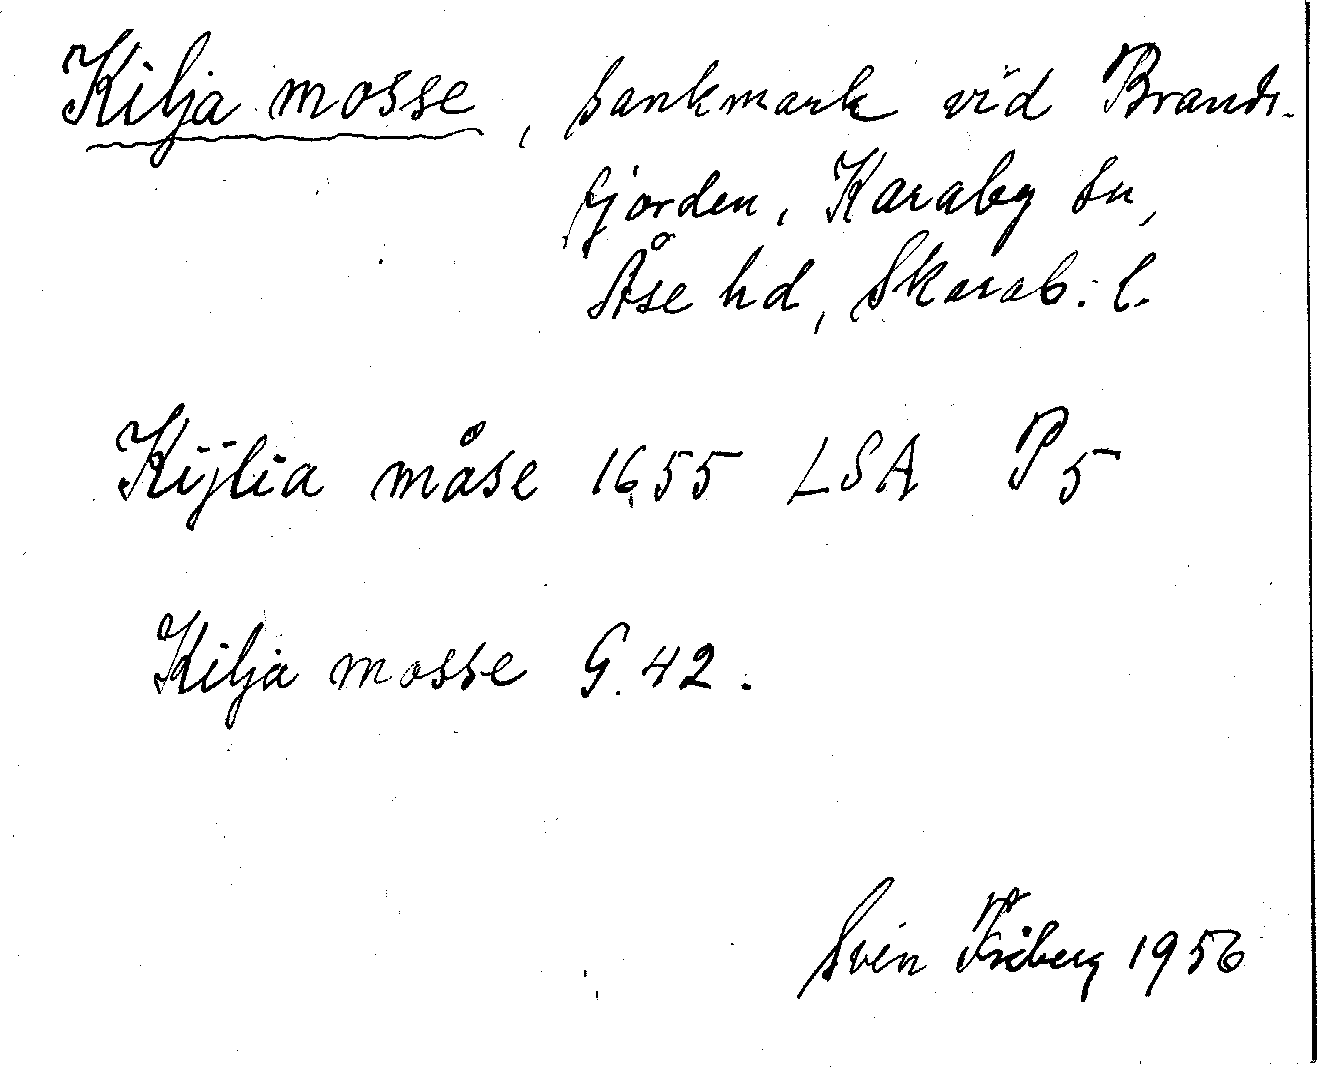 Kilja mosse, sankmark vid Brands-
fjorden, Karaby sn,
Åse hd, Skarab. l.
Kijlia måse 1655 LSA P5
Kilja mosse G. 42.
Sven Friberg 1956